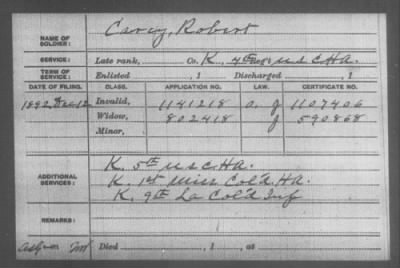 NAME OF SOLDIER: Carey, Robert
SERVICE: Late rank, Co. K, 4th Reg't U S C H A.
TERM OF SERVICE: Enlisted , 1 Discharged , 1
DATE OF FILING. CLASS. APPLICATION NO. LAW. CERTIFICATE NO.
1892 Dec 12 Invalid, 1141218 O. G 1107406
Widow, 802418 G 590868
Minor,
ADDITIONAL SERVICES: K. 5th U S C H A.
K. 1st Miss Col'd H A.
K. 9th La Col'd Inf
REMARKS:
Died , 1 , at